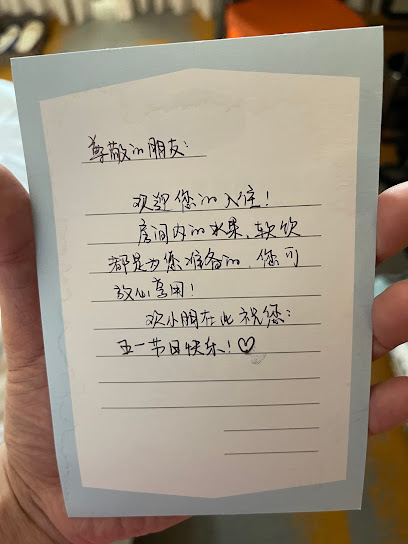 尊敬的朋友:
欢迎您的入住!
房间内的水果、软饮
都是为您准备的,您可
放心享用!
欢小朋在此祝您:
五一节日快乐!♡